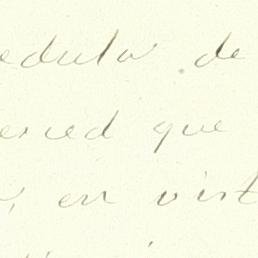 edula de
erced que
en vist